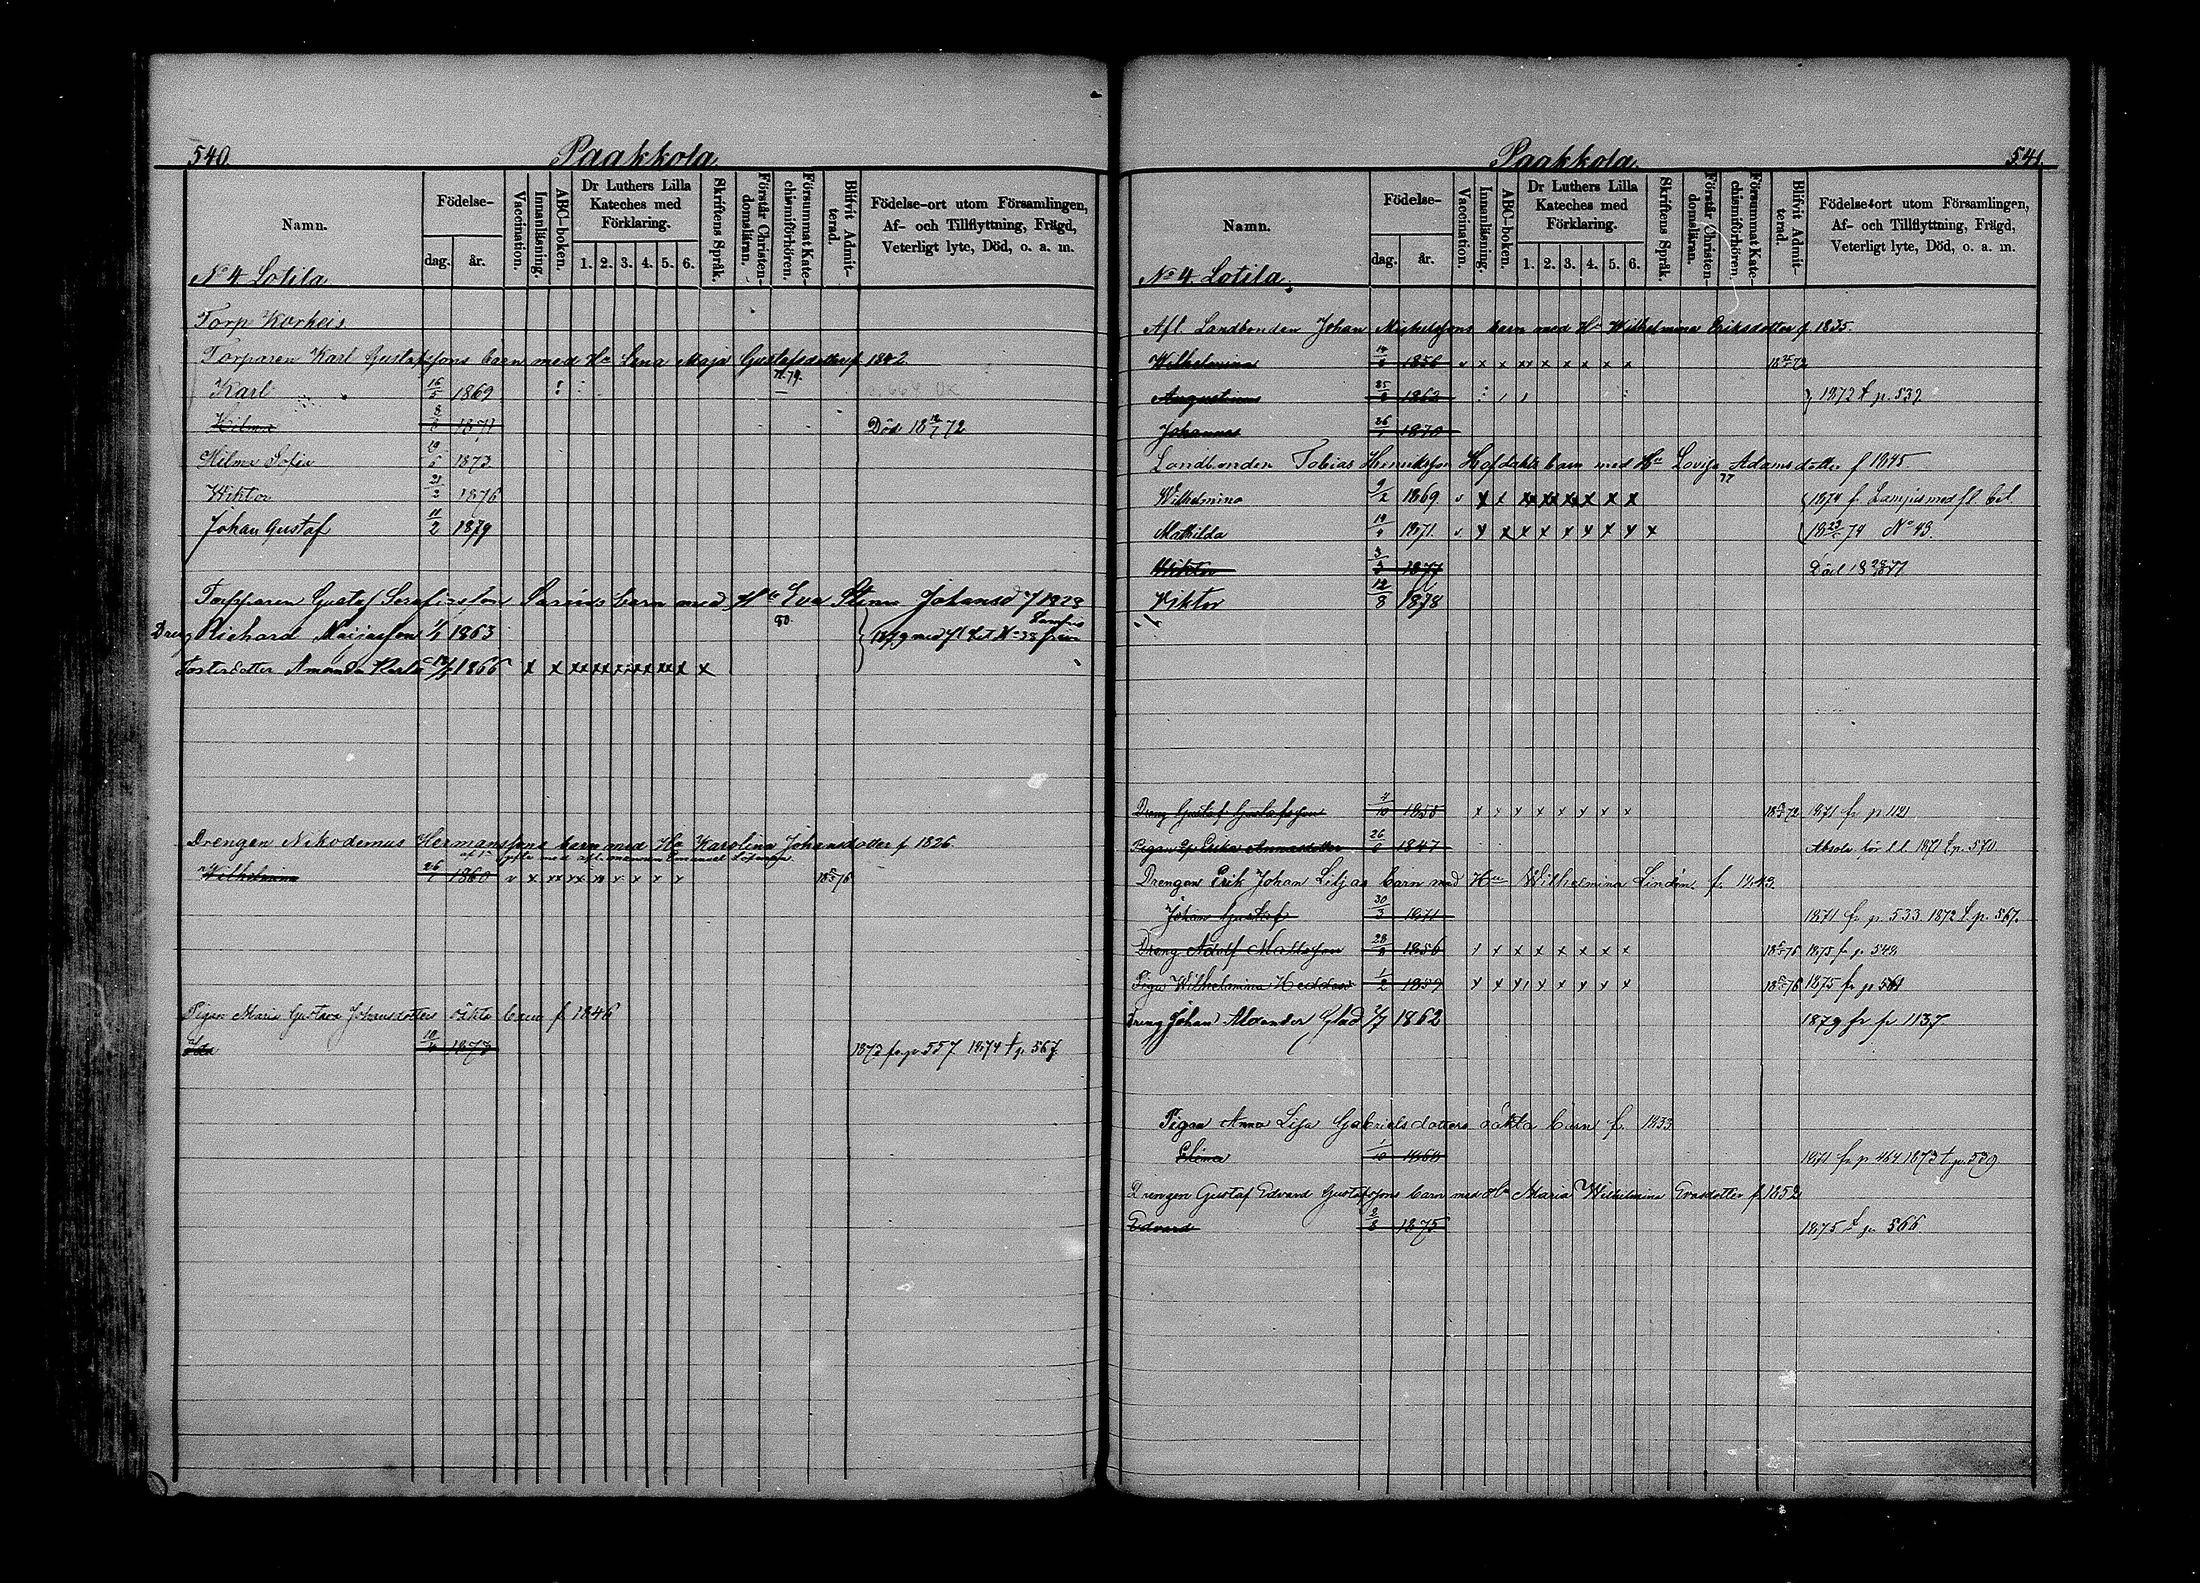 540. Paakkola
Namn. Födelse- dag. år. Vaccination. Innanläsning. ABC-boken. Dr Luthers Lilla Kateches med Förklaring. 1. 2. 3. 4. 5. 6. Skriftens Språk. Förstår Christendomsläran. Försummat Katechismiförhören. Blifvit Admitterad. Födelse-ort utom Församlingen, Af- och Tillflyttning, Frägd, Veterligt lyte, Död, o. a. m.
No 4 Lotila
Torp Korkeis
Torparen Karl Gustafssons barn med Hu Lena Maja Gustafsdotter f 1842
Karl 16/5 1869
Hilma 1871 Död 18 72
Hilma Sofia 1873
Wiktor 21/2 1876
Johan Gustaf 11/2 1879
Torparen Gustaf Serafinsson barn med Hu Eva Stina Johansd f 1823
Dreng Richard 1863 1879 med fl bet No 33 från Lampis
Fosterdotter Amanda Karla 1866 x x xx xx x xx xx x x
Drengen Nikodemus Hermanssons barn med Hu Karolina Johansdotter f 1826
Wilhelmina 26/1 1860 v x xx xx x x x x 76
Pigan Maria Gustava Johansdotters oäkta barn f. 1846
Ida 1873 1873 fr p. 557 1874 t p. 567
Paakkola. 541.
Namn. Födelse- dag. år. Vaccination. Innanläsning. ABC-boken. Dr Luthers Lilla Kateches med Förklaring. 1. 2. 3. 4. 5. 6. Skriftens Språk. Förstår Christendomsläran. Försummat Katechismiförhören. Blifvit Admitterad. Födelse-ort utom Församlingen, Af- och Tillflyttning, Frägd, Veterligt lyte, Död, o. a. m.
No 4. Lotila
Afl. Landbonden Johan Mickelssons barn med Hu Wilhelmina Eriksdotter f. 1835.
Wilhelmina 1856 v x x xx x x x x x 72
Augustinus 1863 1872 t p. 539
Johannes 26/1 1870
Landbonden Tobias Henriksson barn med Hu Lovisa Adamsdotter f 1845
Wilhelmina 9/2 1869 v x x xx xx xx x x x 1874 f. Lampis med fl. bet
Mathilda 1871 v x x x x x x x x x 74 No 43.
Wiktor 1877 Död 18 77
Viktor 12/8 1878
Dreng Gustaf Gustafsson 4/10 1855 x x x x x x x x 72 1871 fr p 1121
Pigan Erika Annasdotter 1847 1871 t p. 570
Drengen Erik Johan Liljas barn med Hu Wilhelmina Lindén f. 1843.
Johan Gustaf 30/3 1871 1871 fr p. 533. 1872 t p. 567.
Dreng Adolf Mattsson 1856 x x x x x x x 76 1875 fr p. 548
Piga Wilhelmina 1/2 1859 x x x x x x x x 76 1875 fr p 561
Dreng Johan Alexander Glad 1862 1879 fr p 1137
Pigan Anna Lisa Gabrielsdotters oäkta barn f. 1833.
1/10 1868 1871 fr p 464 1873 t p. 539
Drengen Gustaf Edvard Gustafssons barn med Hu Maria Wilhelmina Evasdotter f. 1852
Edvard 1875 1875 t p. 566